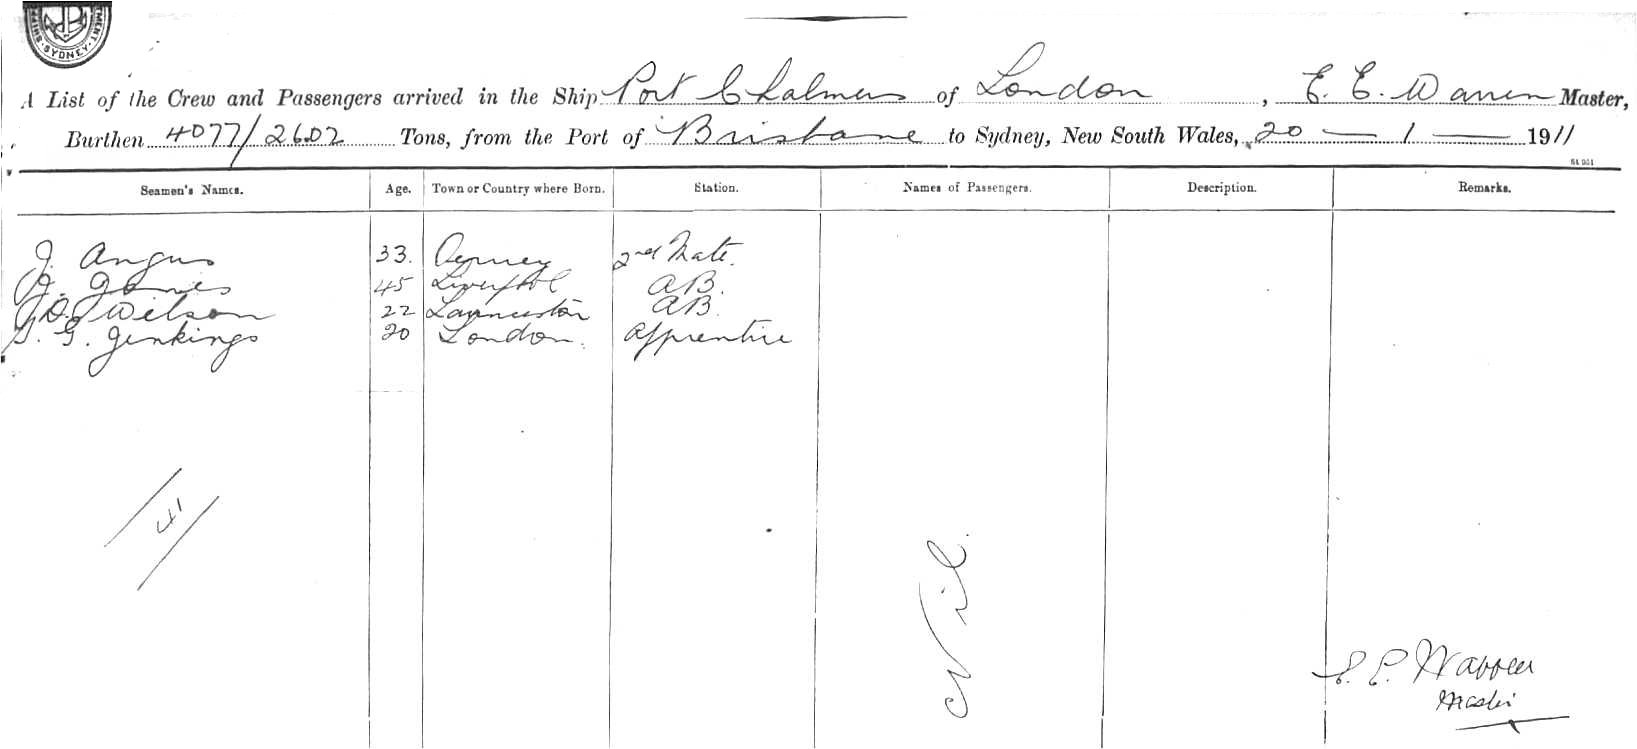 SYDNEY
A List of the Crew and Passengers arrived in the Ship Port Chalmers of London, E. E. Warren Master,
Burthen 4077/2602 Tons, from the Port of Brisbane to Sydney, New South Wales, 20 — 1 — 1911
Seamen's Names. Age. Town or Country where Born. Station. Names of Passengers. Description. Remarks.
J. Angus 33. 2nd Mate.
Jones 45 Liverpool AB.
Wilson 22 Launceston AB.
G. Jenkings 20 London. Apprentice
41
Nil.
E. E. Warren
Master